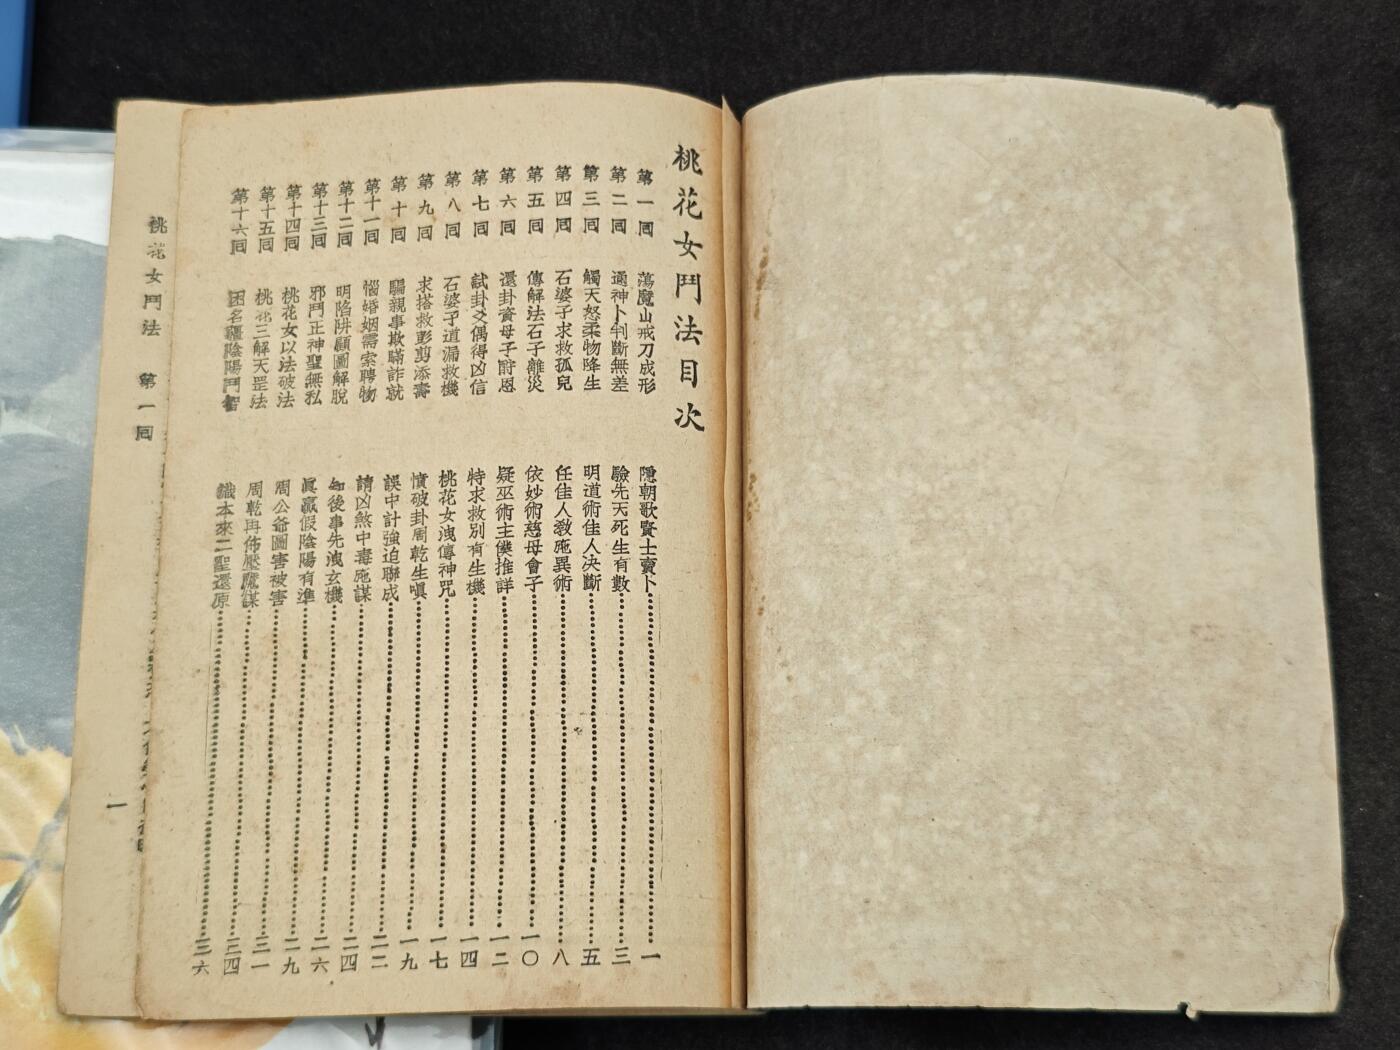 桃花女鬥法目次
第一囘 蕩魔山戒刀成形 隱朝歌賢士賣卜 一
第二囘 通神卜判斷無差 驗先天死生有數 三
第三囘 觸天怒柔物降生 明道術佳人決斷 五
第四囘 石婆子求救孤兒 任佳人敎施異術 八
第五囘 傳解法石子離災 依妙術慈母會子 一〇
第六囘 還卦資母子酧恩 疑巫術主僕推詳 一二
第七囘 試卦爻偶得凶信 特求救別有生機 一四
第八囘 石婆子道漏救機 桃花女洩傳神咒 一七
第九囘 求搭救彭剪添壽 憤破卦周乾生嗔 一九
第十囘 騙親事欺瞞詐就 誤中計強迫聯成 二二
第十一囘 惱婚姻需索聘物 請凶煞中毒施謀 二四
第十二囘 明陷阱顧圖解脫 知後事先洩玄機 二六
第十三囘 邪鬥正神聖無私 眞贏假陰陽有準 二九
第十四囘 桃花女以法破法 周公爺圖害被害 三一
第十五囘 桃花三解天罡法 周乾再佈壓魔謀 三四
第十六囘 困名韁陰陽鬥智 識本來二聖還原 三六
桃花女鬥法 第一囘 一